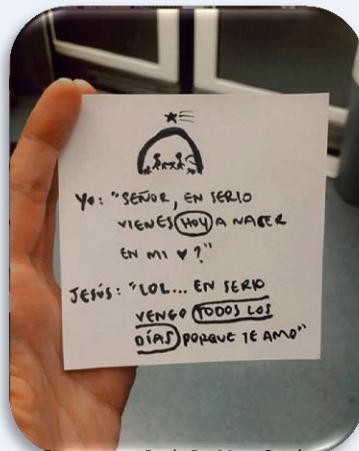 Yo: "SEÑOR, EN SERIO
VIENES HOY A NACER
EN MI ♥?"
JESÚS: "LOL... EN SERIO
VENGO TODOS LOS
DÍAS PORQUE TE AMO"